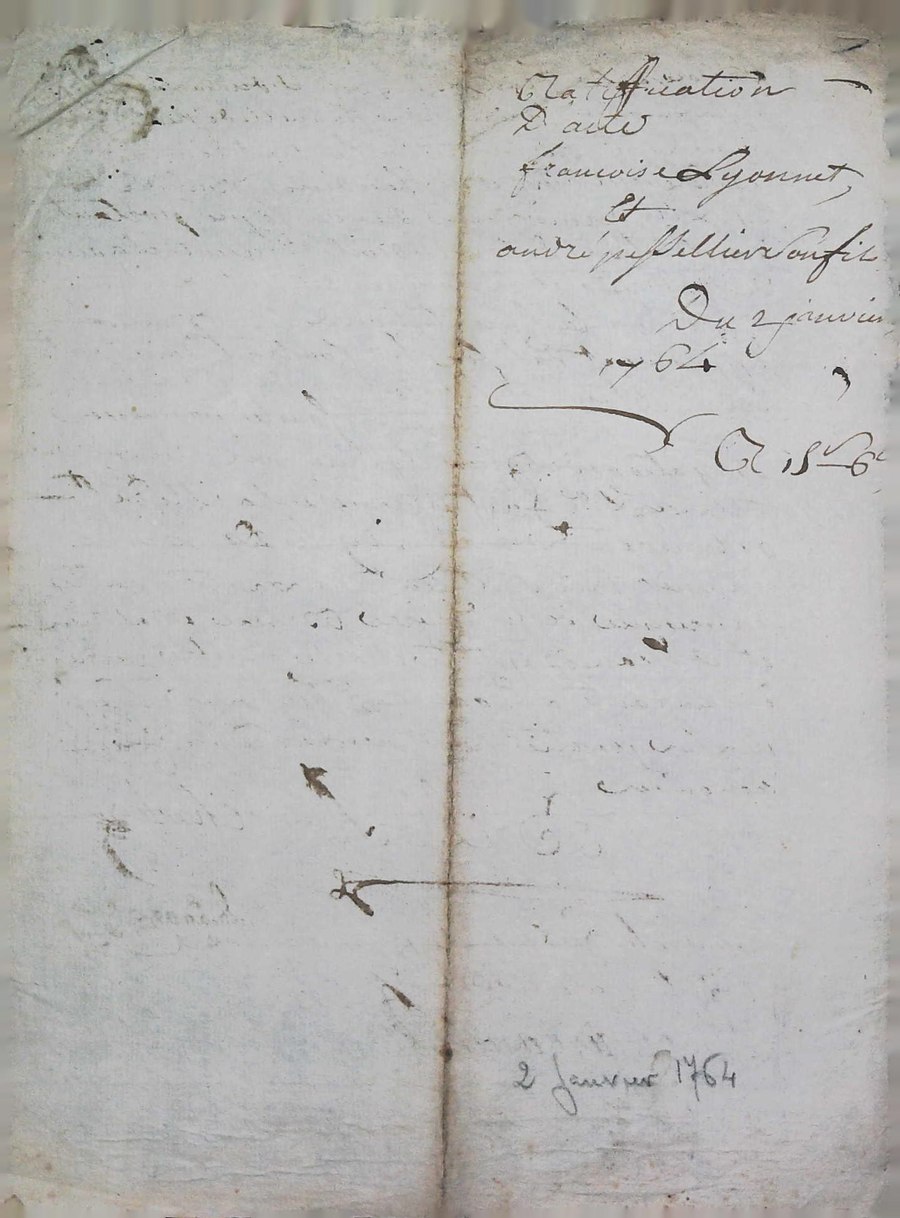 Ratiffication
D'acte
francoise Lyonnet,
Et
andré pessellier Son fils
Du 2 janvier
1764
R 15ˢ 6ᵈ
2 Janvier 1764